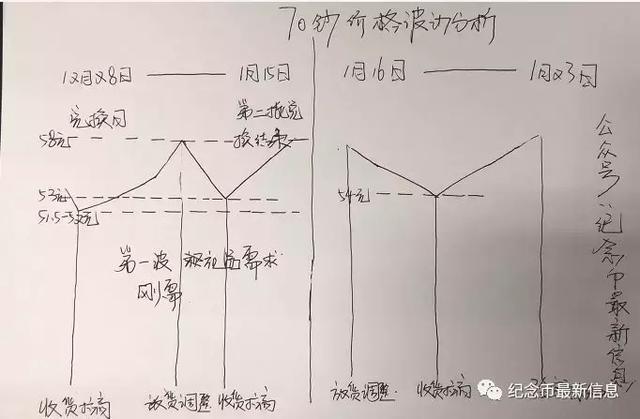 70钞价格波动分析
12月28日 —— 1月15日
1月16日 —— 1月23日
兑换日
第二批兑
换结束
58元
53元
51.5-52元
54元
第一波
刚需
市场需求
收货拉高
放货调整
收货拉高
放货调整
收货拉高
公众号:纪念币最新信息
纪念币最新信息